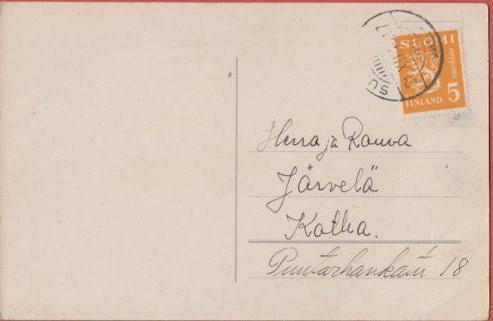 SUOMI
5 markkaa
FINLAND
SU
Herra ja Rouva
Järvelä
Kotka.
Puutarhankatu 18